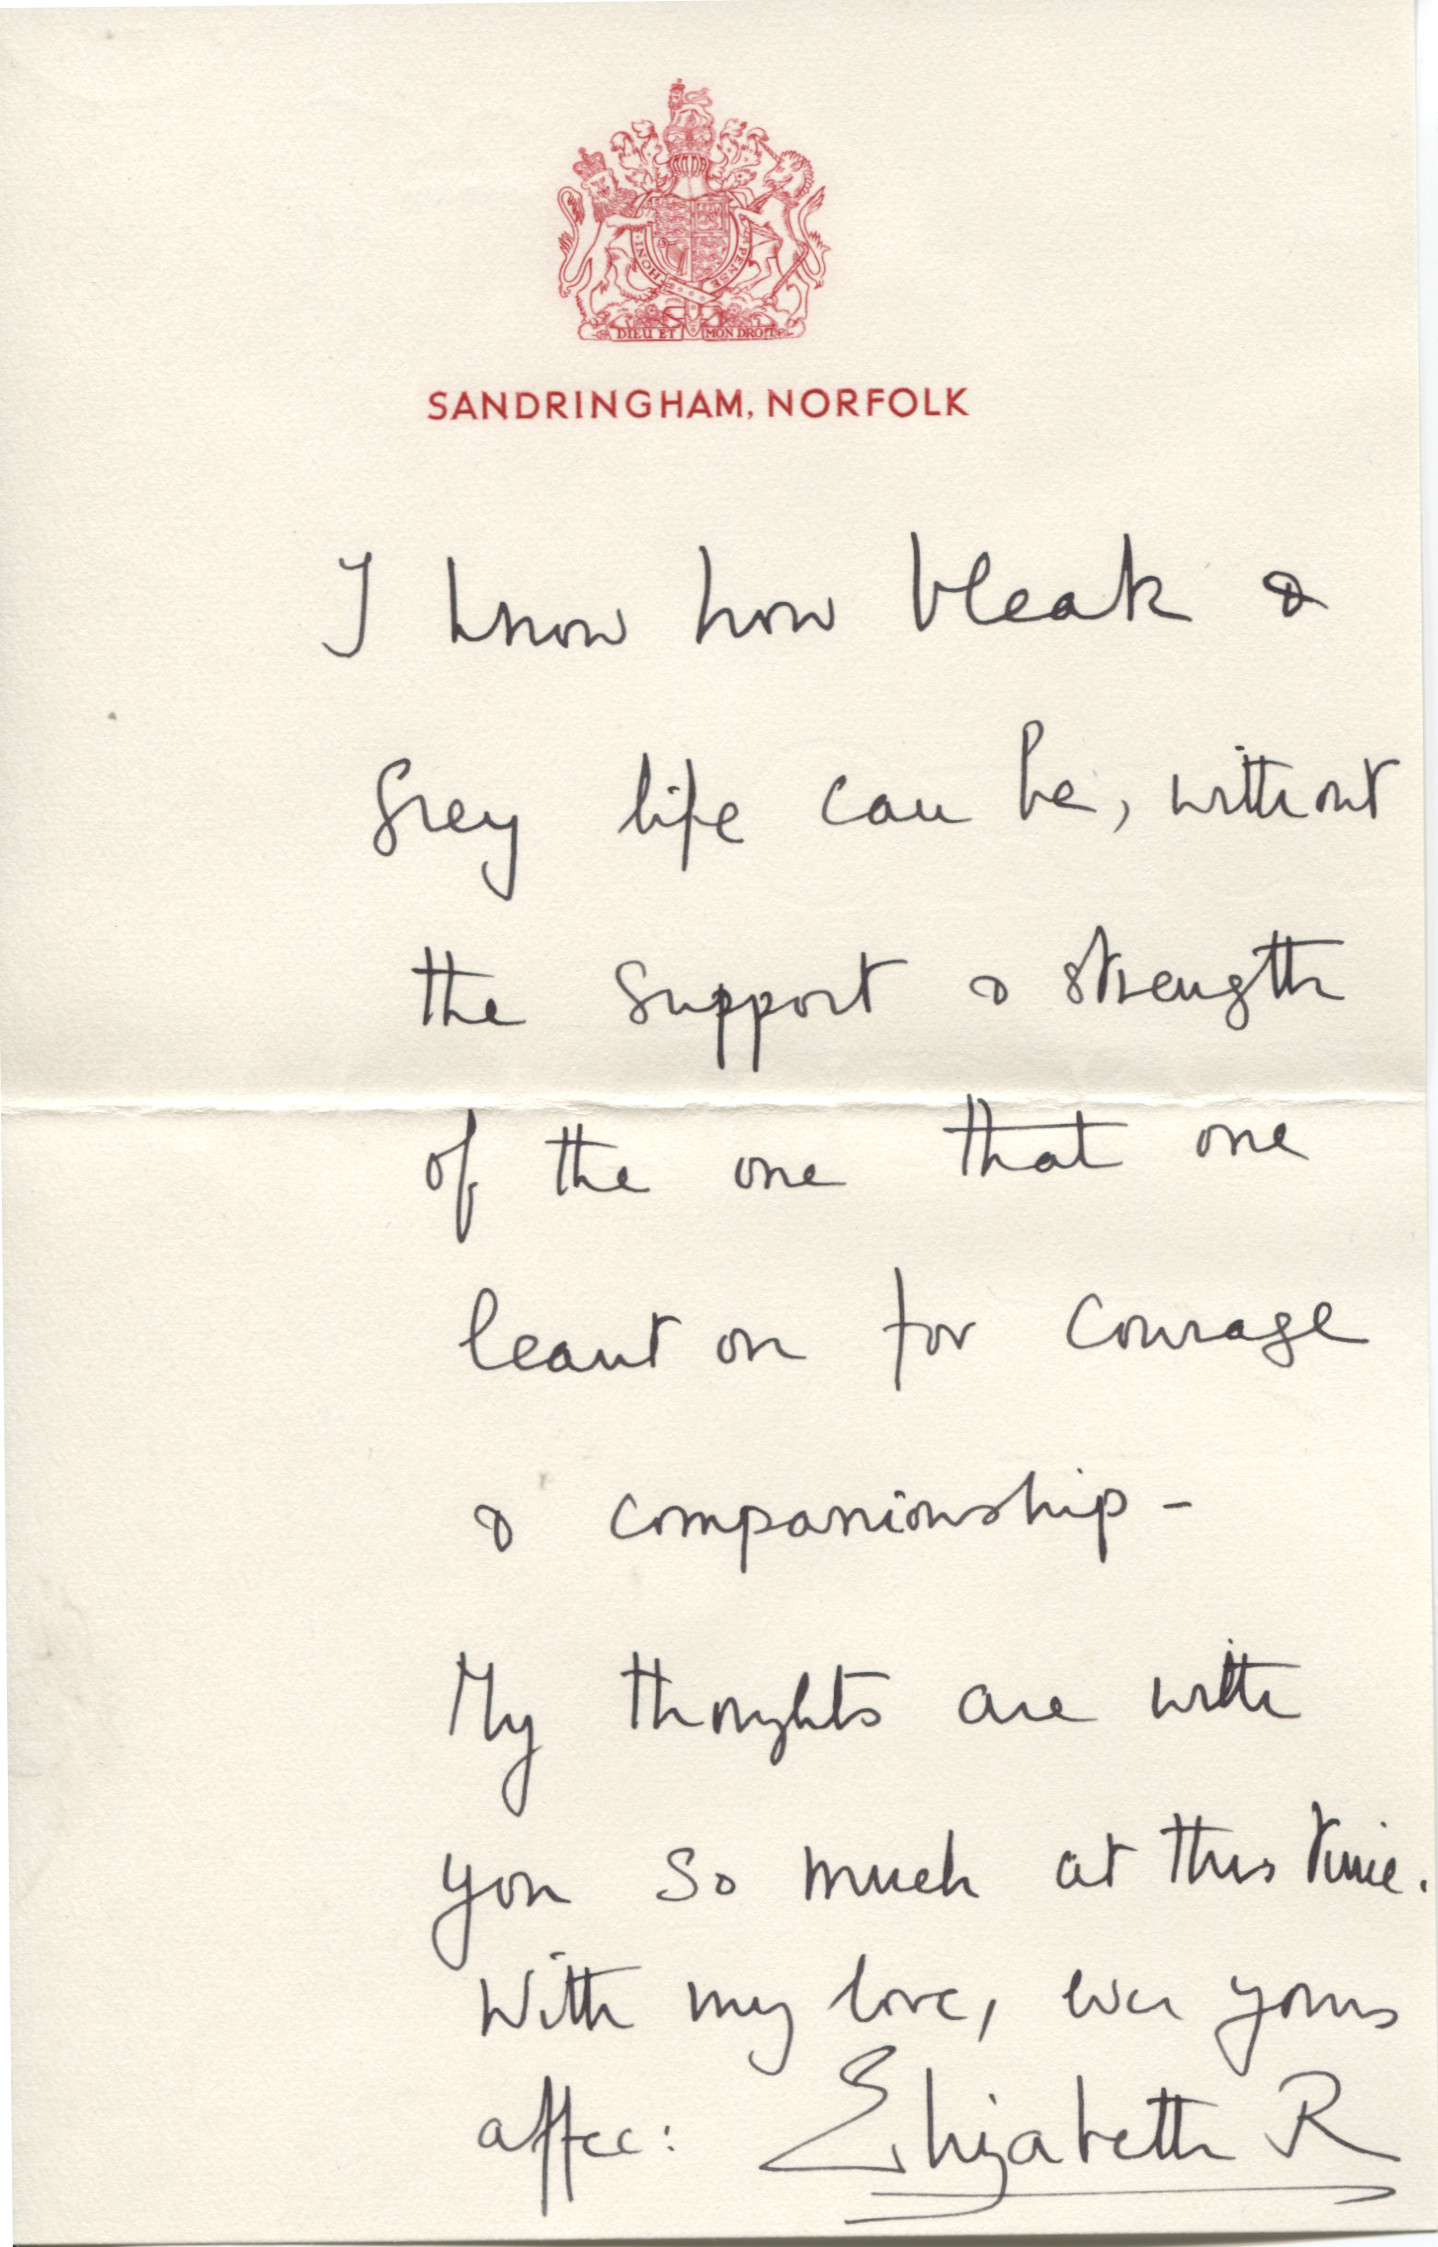 HONI
PENSE
DIEU ET MON DROIT
SANDRINGHAM, NORFOLK
I know how bleak &
grey life can be, without
the support & strength
of the one that one
leant on for courage
& companionship –
My thoughts are with
you so much at this time.
With my love, ever yours
affec: Elizabeth R